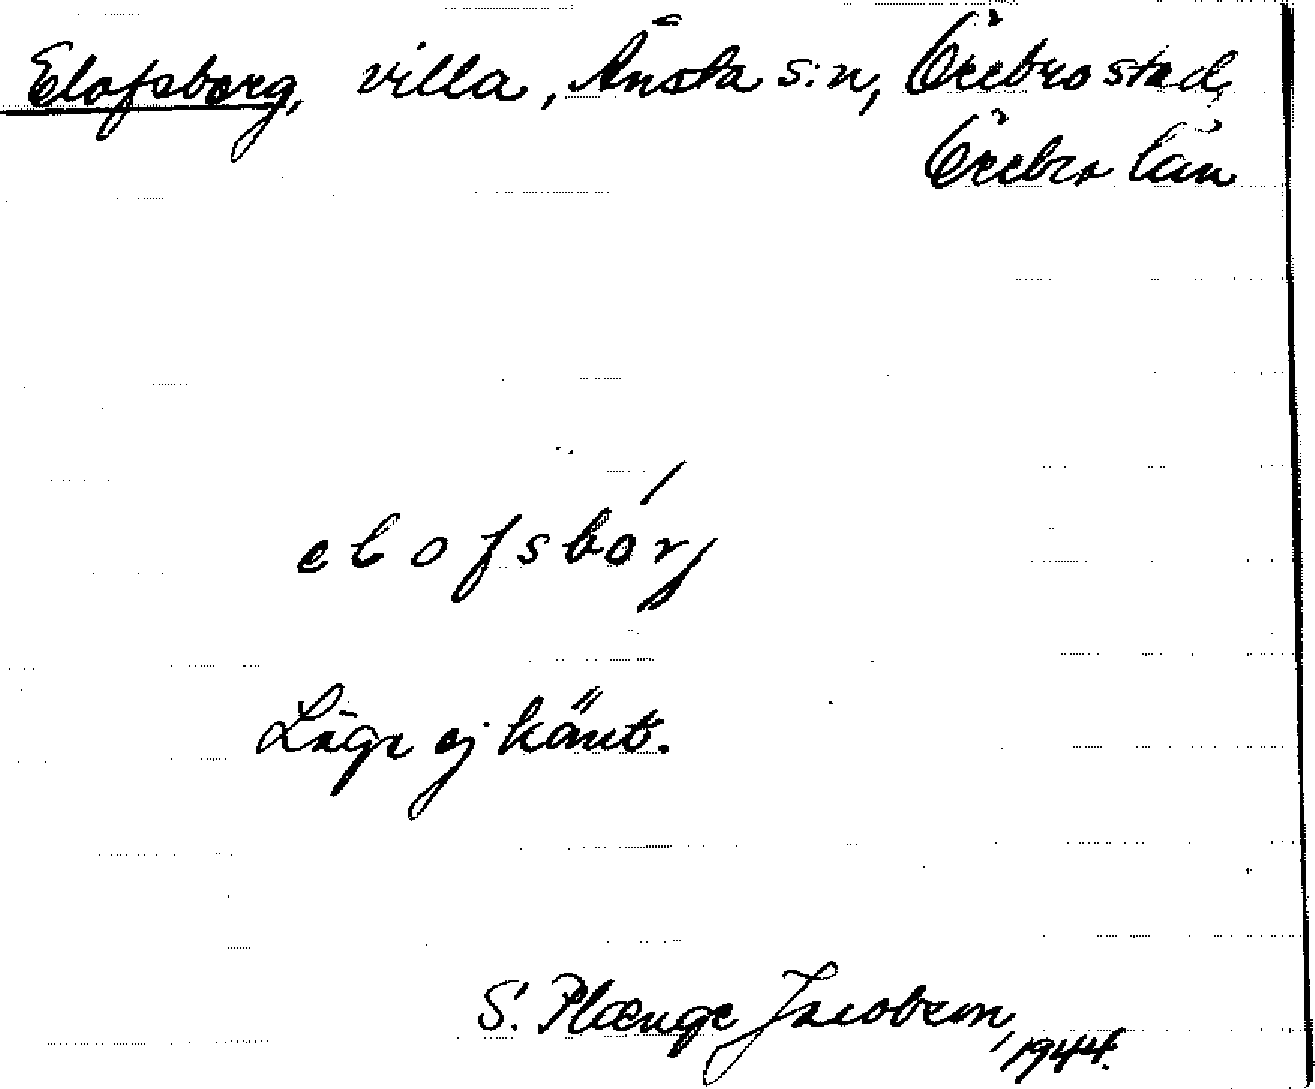 Elofsborg, villa, Ånsta s:n, Örebro stad,
Örebro län
elofsbórj
Läge ej känt.
S. Plænge Jacobson,
1944.